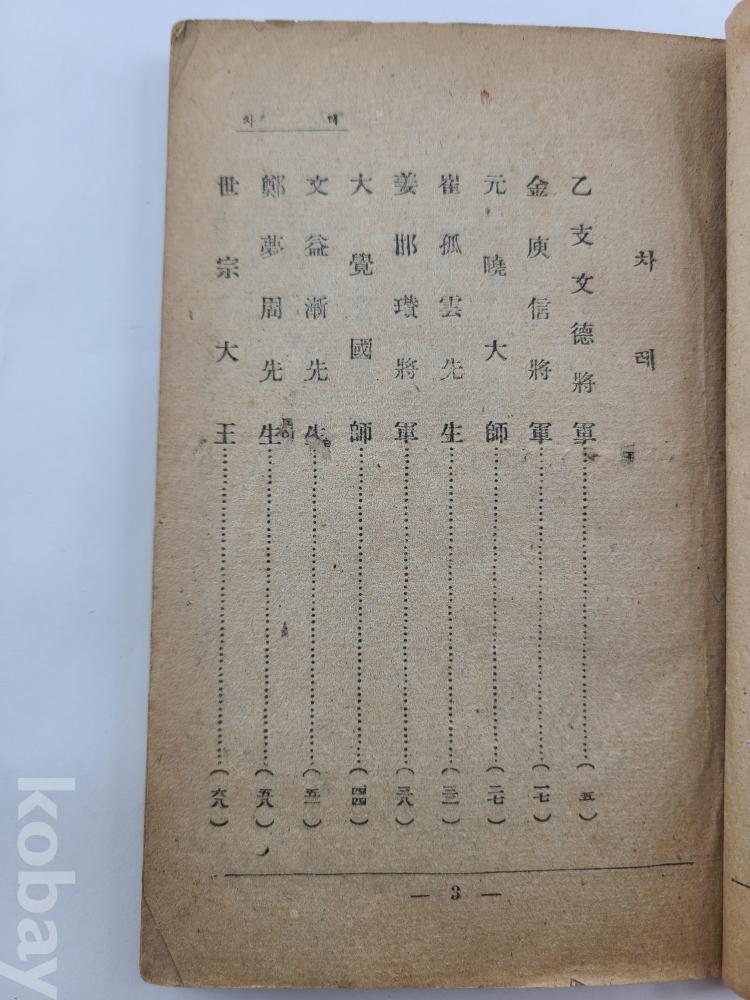 차 례
차 례
乙支文德將軍……(五)
金庾信將軍……(一七)
元曉大師……(二七)
崔孤雲先生……(三二)
姜邯瓚將軍……(三八)
大覺國師……(四四)
文益漸先生……(五一)
鄭夢周先生……(五八)
世宗大王……(六八)
— 3 —
kobay